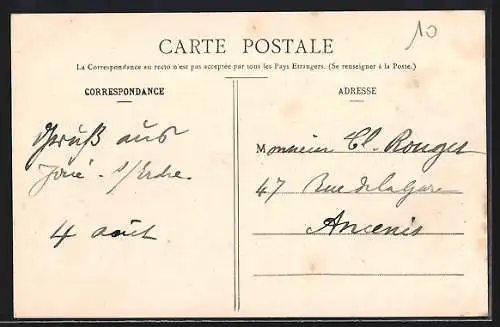 10
CARTE POSTALE
La Correspondance au recto n'est pas acceptée par tous les Pays Etrangers. (Se renseigner à la Poste.)
CORRESPONDANCE
Gruß aus
Joué-s/Erdre.
4 août
ADRESSE
Monsieur Cl. Rouget
47 Rue de la Gare
Ancenis